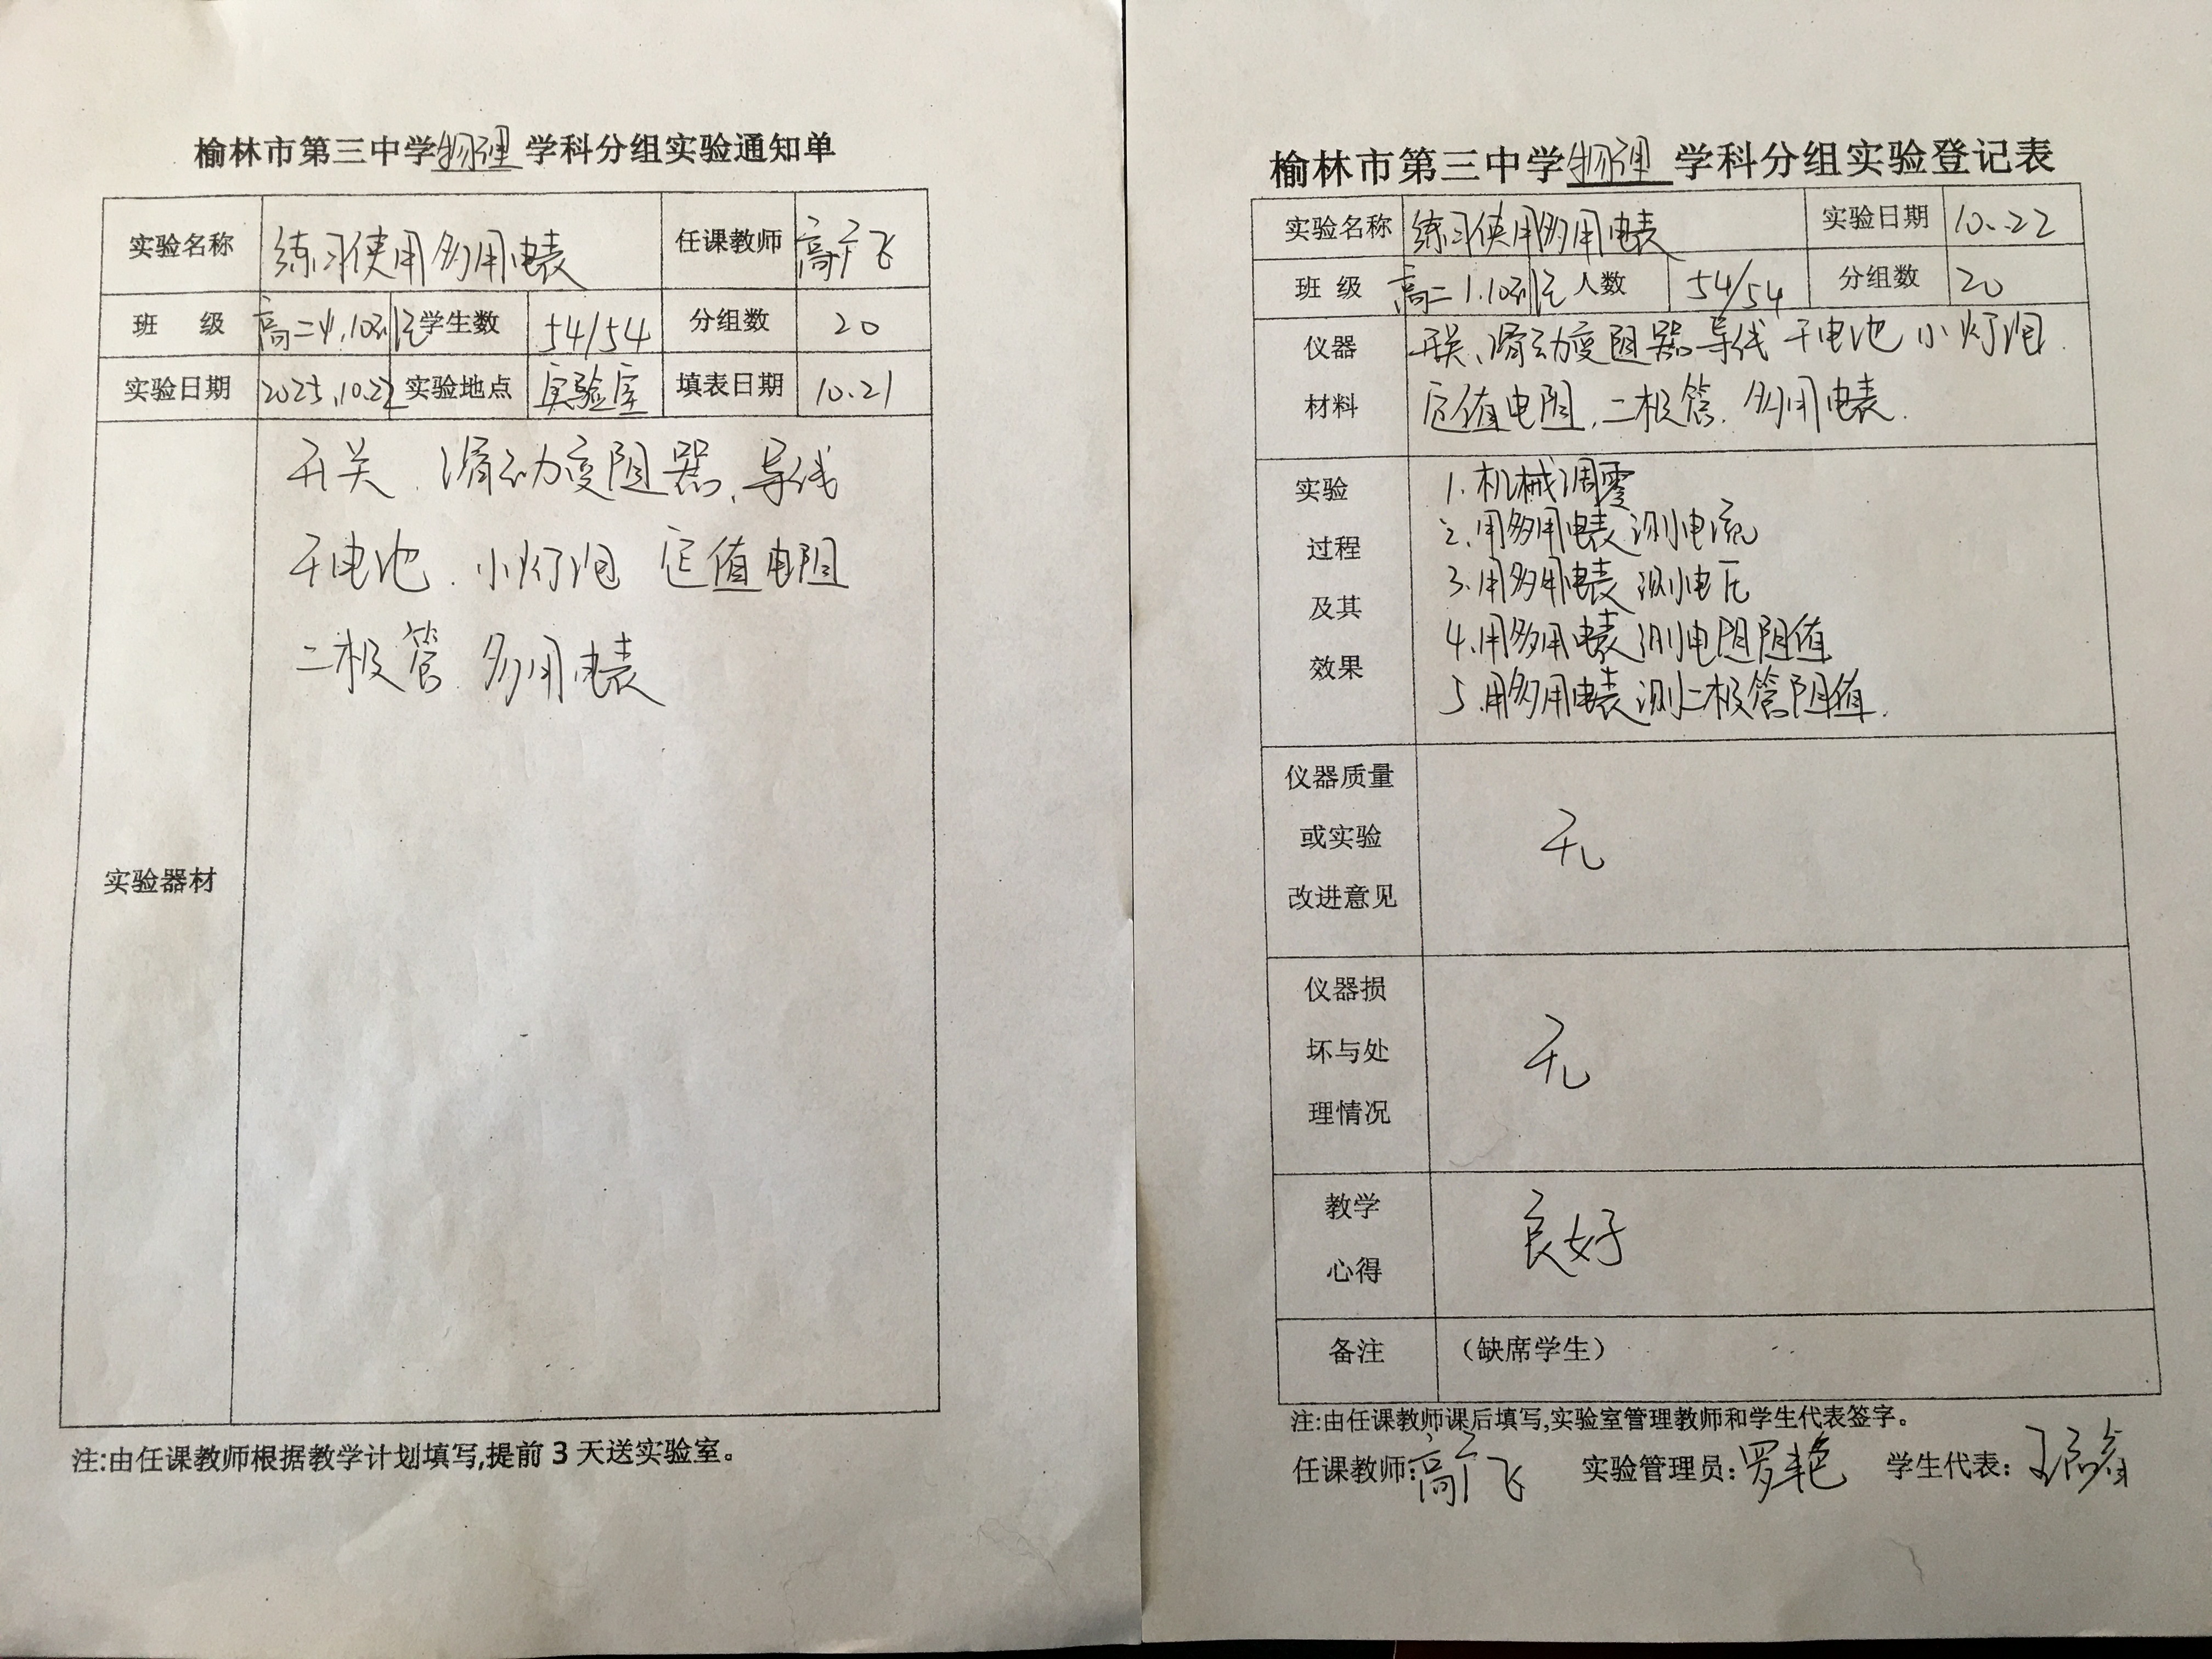 榆林市第三中学物理学科分组实验通知单
实验名称 练习使用多用电表 任课教师 高广飞
班 级 高二 10班 学生数 54/54 分组数 20
实验日期 2025.10.22 实验地点 实验室 填表日期 10.21
实验器材
开关、滑动变阻器、导线
干电池、小灯泡 定值电阻
二极管 多用电表
注:由任课教师根据教学计划填写,提前 3 天送实验室。
榆林市第三中学物理学科分组实验登记表
实验名称 练习使用多用电表 实验日期 10.22
班 级 高二 1.10 人数 54/54 分组数 20
仪器材料
开关、滑动变阻器 导线 干电池 小灯泡.
定值电阻.二极管.多用电表.
实验过程及其效果
1.机械调零
2.用多用电表测电流
3.用多用电表测电压
4.用多用电表测电阻阻值
5.用多用电表测二极管阻值.
仪器质量或实验改进意见 无
仪器损坏与处理情况 无
教学心得 良好
备注 (缺席学生)
注:由任课教师课后填写,实验室管理教师和学生代表签字。
任课教师:高广飞 实验管理员:罗艳 学生代表: